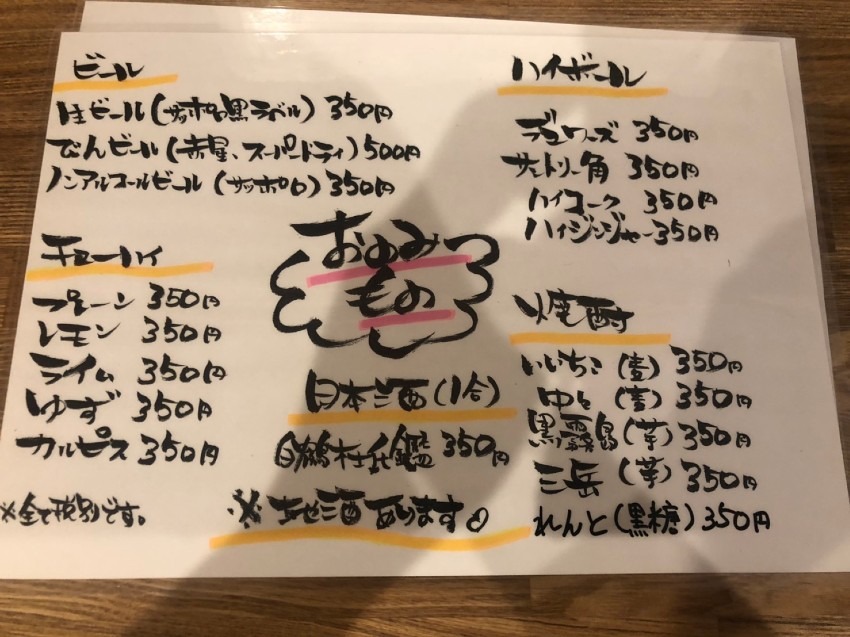 ビール
生ビール(サッポロ黒ラベル) 350円
びんビール(赤星、スーパードライ) 500円
ノンアルコールビール (サッポロ) 350円
チューハイ
プレーン 350円
レモン 350円
ライム 350円
ゆず 350円
カルピス 350円
※全て税別です。
おのみ
もの
日本酒 (1合)
白鶴杜氏鑑 350円
※地酒あります
ハイボール
デュワーズ 350円
サントリー角 350円
ハイコーク 350円
ハイジンジャー 350円
焼酎
いいちこ (麦) 350円
(麦) 350円
黒霧島 (芋) 350円
三岳 (芋) 350円
れんと (黒糖) 350円